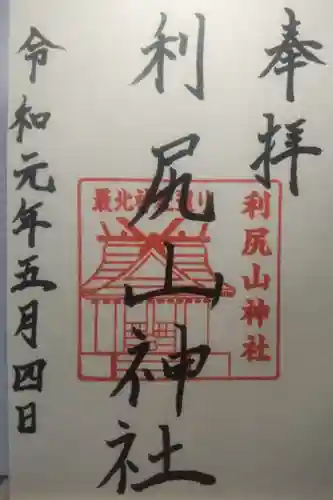 奉拝
利尻山神社
令和元年五月四日
利尻山神社